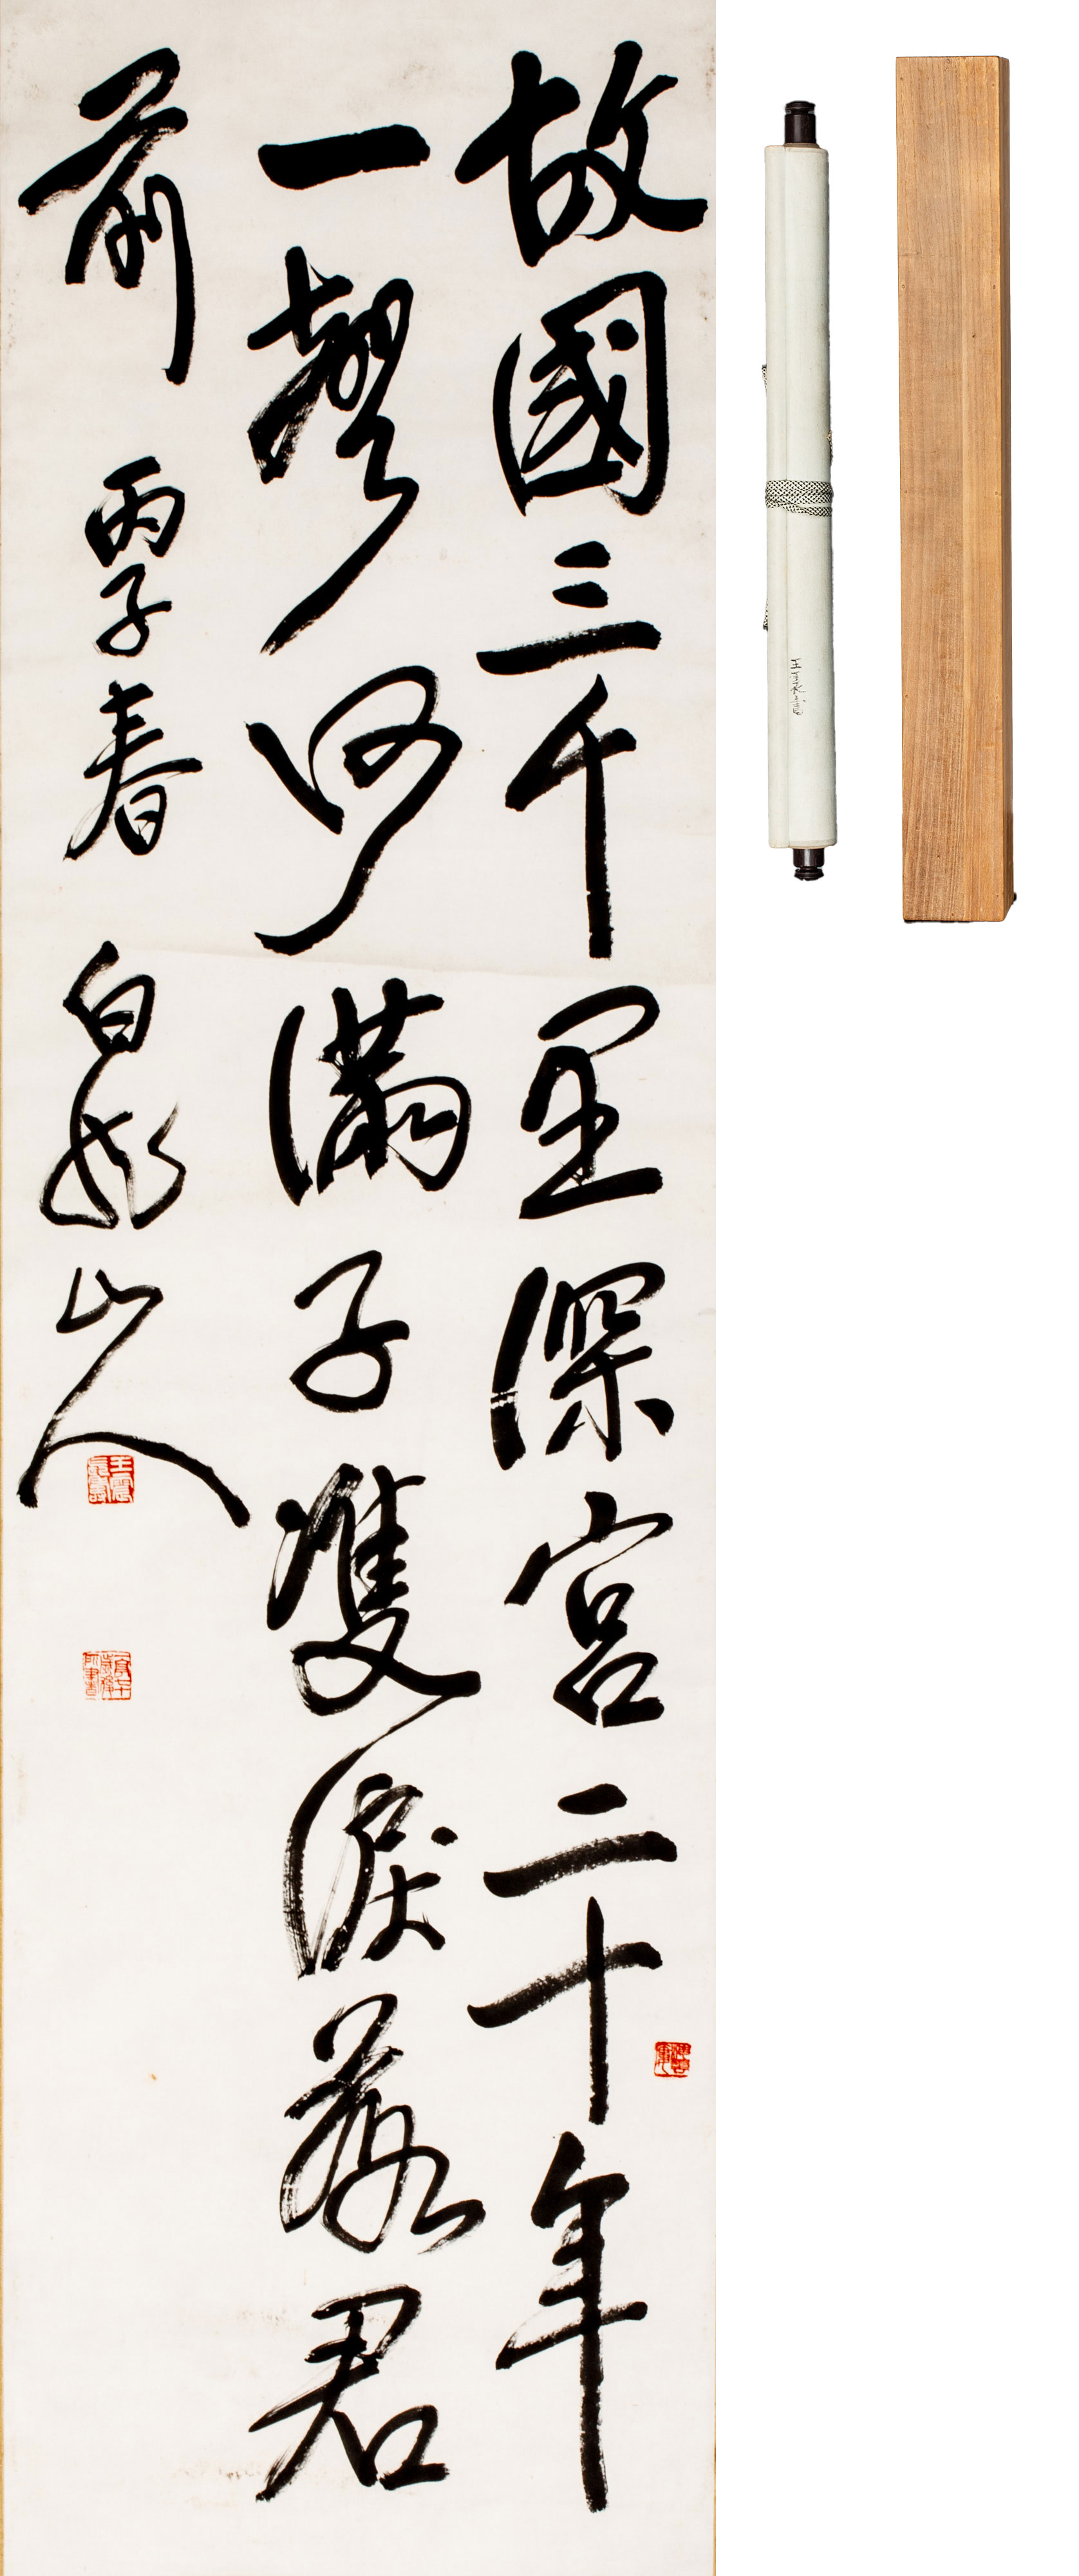 故國三千里深宮二十年
一聲何滿子雙淚落君
前 丙子春 白龍山人
王震長壽